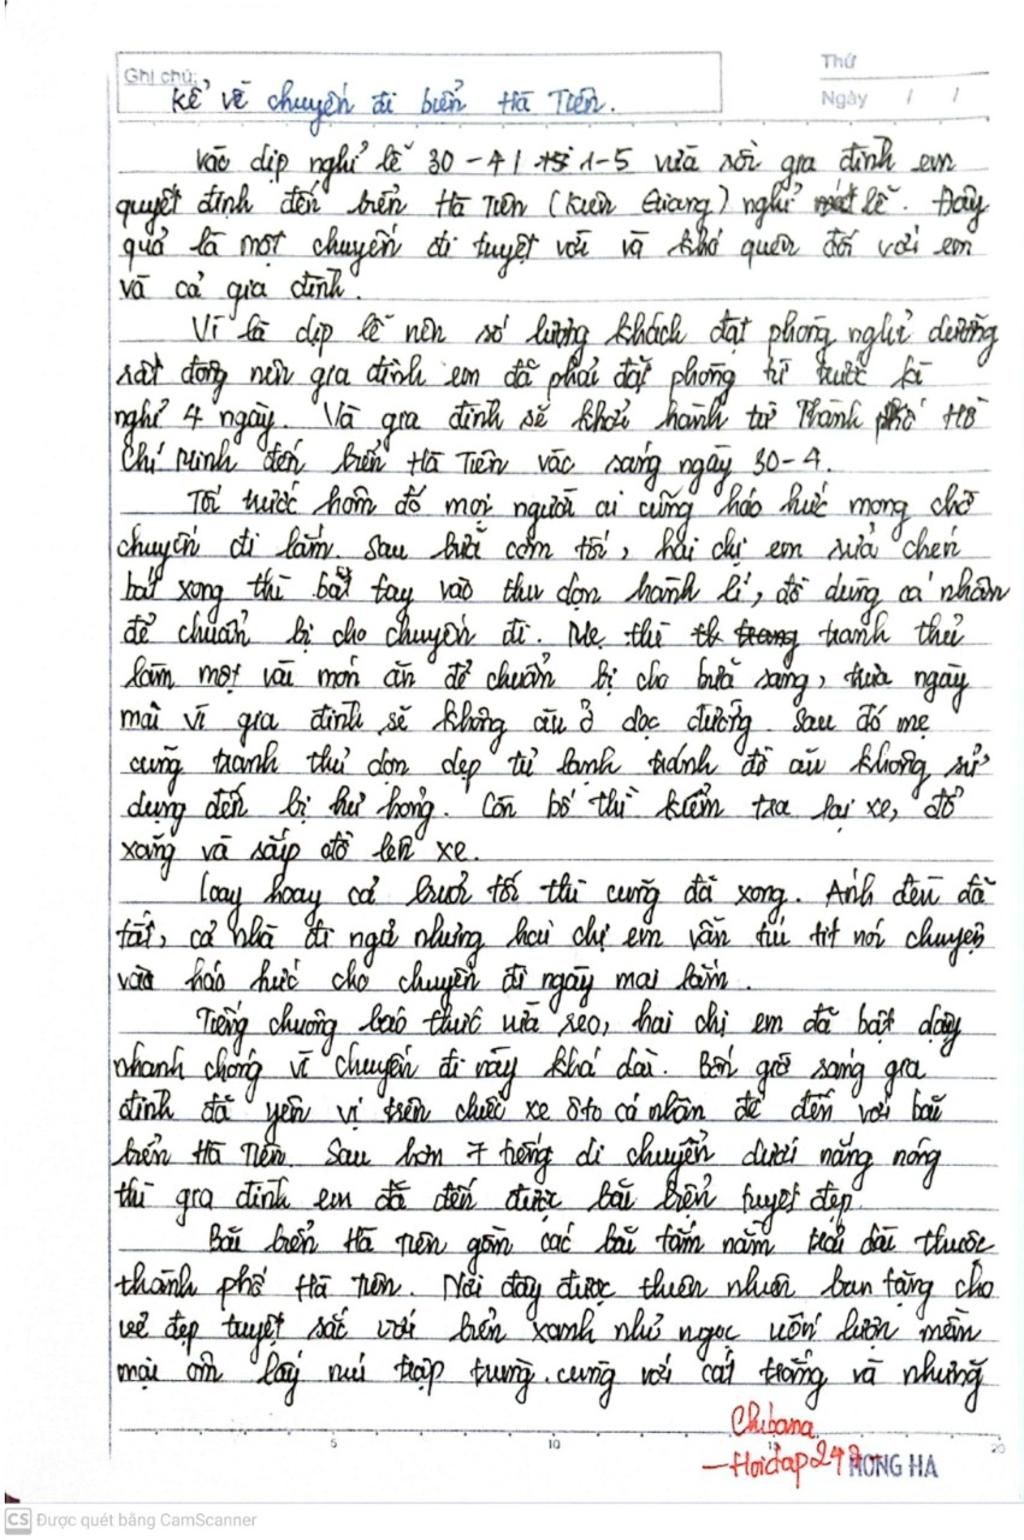 Ghi chú:
Thứ
Ngày / /
Kể về chuyến đi biển Hà Tiên.
Vào dịp nghỉ lễ 30-4 / 1-5 vừa rồi gia đình em
quyết định đến biển Hà Tiên (Kiên Giang) nghỉ lễ. Đây
quả là một chuyến đi tuyệt vời và khó quên đối với em
và cả gia đình.
Vì là dịp lễ nên số lượng khách đặt phòng nghỉ dưỡng
rất đông nên gia đình em đã phải đặt phòng từ trước kì
nghỉ 4 ngày. Và gia đình sẽ khởi hành từ Thành phố Hồ
Chí Minh đến biển Hà Tiên vào sáng ngày 30-4.
Tối trước hôm đó mọi người ai cũng háo hức mong chờ
chuyến đi lắm. Sau bữa cơm tối, hai chị em rửa chén
bát xong thì bắt tay vào thu dọn hành lí, đồ dùng cá nhân
để chuẩn bị cho chuyến đi. Mẹ thì tranh thủ
làm một vài món ăn để chuẩn bị cho bữa sáng, trưa ngày
mai vì gia đình sẽ không ăn ở dọc đường. Sau đó mẹ
cũng tranh thủ dọn dẹp tủ lạnh tránh đồ ăn không sử
dụng đến bị hư hỏng. Còn bố thì kiểm tra lại xe, đổ
xăng và sắp đồ lên xe.
Loay hoay cả buổi tối thì cũng đã xong. Ánh đèn đã
tắt, cả nhà đi ngủ nhưng hai chị em vẫn túi tít nói chuyện
vào háo hức cho chuyến đi ngày mai lắm.
Tiếng chuông báo thức vừa reo, hai chị em đã bật dậy
nhanh chóng vì chuyến đi này khá dài. Bốn giờ sáng gia
đình đã yên vị trên chiếc xe ôto cá nhân để đến với bãi
biển Hà Tiên. Sau hơn 7 tiếng di chuyển dưới nắng nóng
thì gia đình em đã đến được bãi biển tuyệt đẹp.
Bãi biển Hà Tiên gồm các bãi tắm nằm trải dài thuộc
thành phố Hà Tiên. Nơi đây được thiên nhiên ban tặng cho
vẻ đẹp tuyệt sắc với biển xanh như ngọc uốn lượn mềm
mại ôm lấy núi trập trùng. cùng với cát trắng và những
Chibana
-Hoidap247-
5 10 15 20
HONG HA
CS Được quét bằng CamScanner